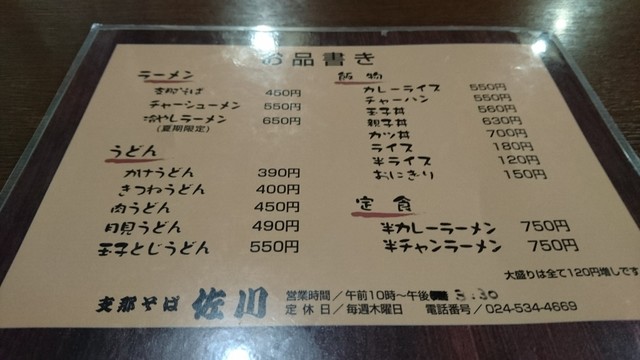 お品書き
ラーメン
支那そば 450円
チャーシューメン 550円
冷やしラーメン 650円
(夏期限定)
うどん
かけうどん 390円
きつねうどん 400円
肉うどん 450円
月見うどん 490円
玉子とじうどん 550円
飯物
カレーライス 550円
チャーハン 550円
玉子丼 560円
親子丼 630円
カツ丼 700円
ライス 180円
半ライス 120円
おにぎり 150円
定食
半カレーラーメン 750円
半チャンラーメン 750円
大盛りは全て120円増しです
支那そば 佐川
営業時間／午前10時〜午後 3:30
定休日／毎週木曜日 電話番号／024-534-4669